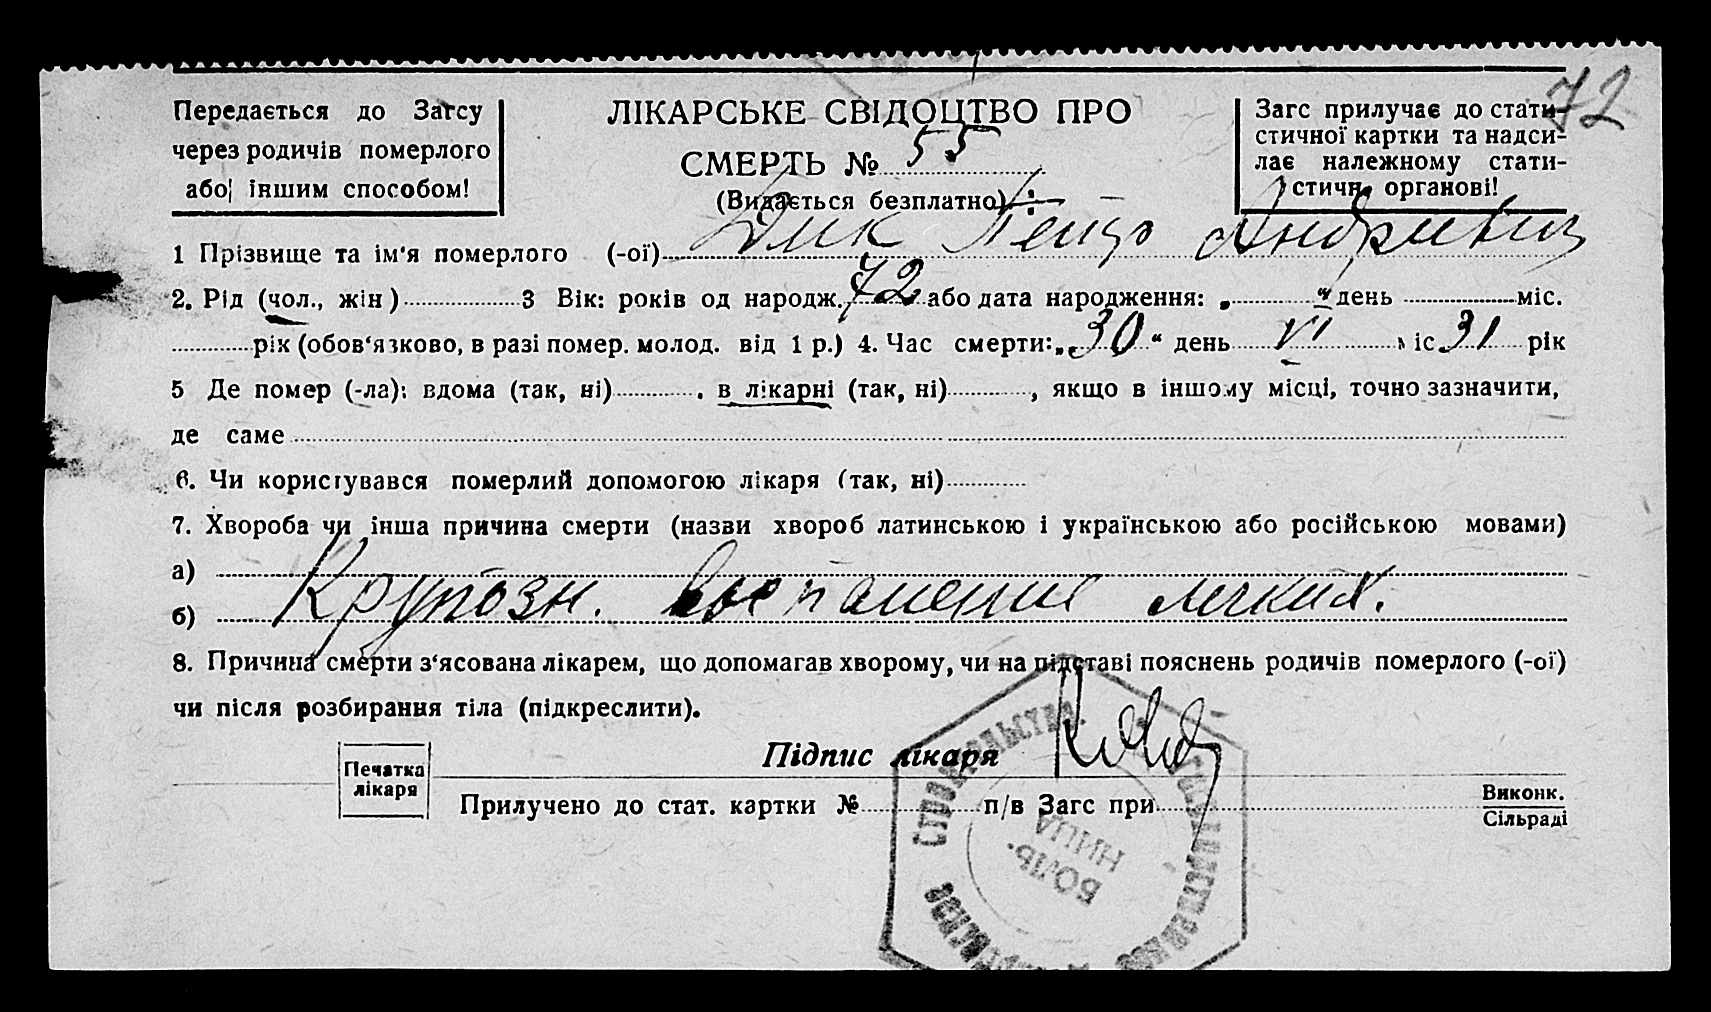 72
Передається до Загсу
через родичів померлого
або іншим способом!
ЛІКАРСЬКЕ СВІДОЦТВО ПРО
СМЕРТЬ № 55
(Видається безплатно)
Загс прилучає до стати-
стичної картки та надси-
лає належному стати-
стичн. органові!
1 Прізвище та ім'я померлого (-ої) Дик Андриевич
2. Рід (чол., жін) 3 Вік: років од народж. 72 або дата народження: „ “ день міс.
рік (обов'язково, в разі помер. молод. від 1 р.) 4. Час смерти: „30“ день VI міс 31 рік
5 Де помер (-ла): вдома (так, ні) , в лікарні (так, ні) , якщо в іншому місці, точно зазначити,
де саме
6. Чи користувався померлий допомогою лікаря (так, ні)
7. Хвороба чи інша причина смерти (назви хвороб латинською і українською або російською мовами)
а)
б) Крупозн. воспаление легких.
8. Причина смерти з'ясована лікарем, що допомагав хворому, чи на підставі пояснень родичів померлого (-ої)
чи після розбирання тіла (підкреслити).
Підпис лікаря
Печатка
лікаря
Прилучено до стат. картки № п/в Загс при
Виконк.
Сільраді
БОЛЬ-
НИЦА